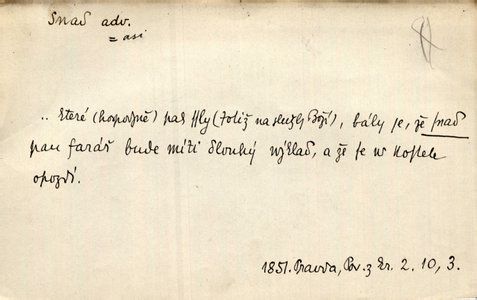 Snad adv.
= asi
.. které (hospodyně) pak šly (totiž na služby Boží), bály se, že snad
pan farář bude míti dlouhý výklad, a že se w kostele
opozdí.
1851. Pravda, Pov. z kr. 2. 10, 3.